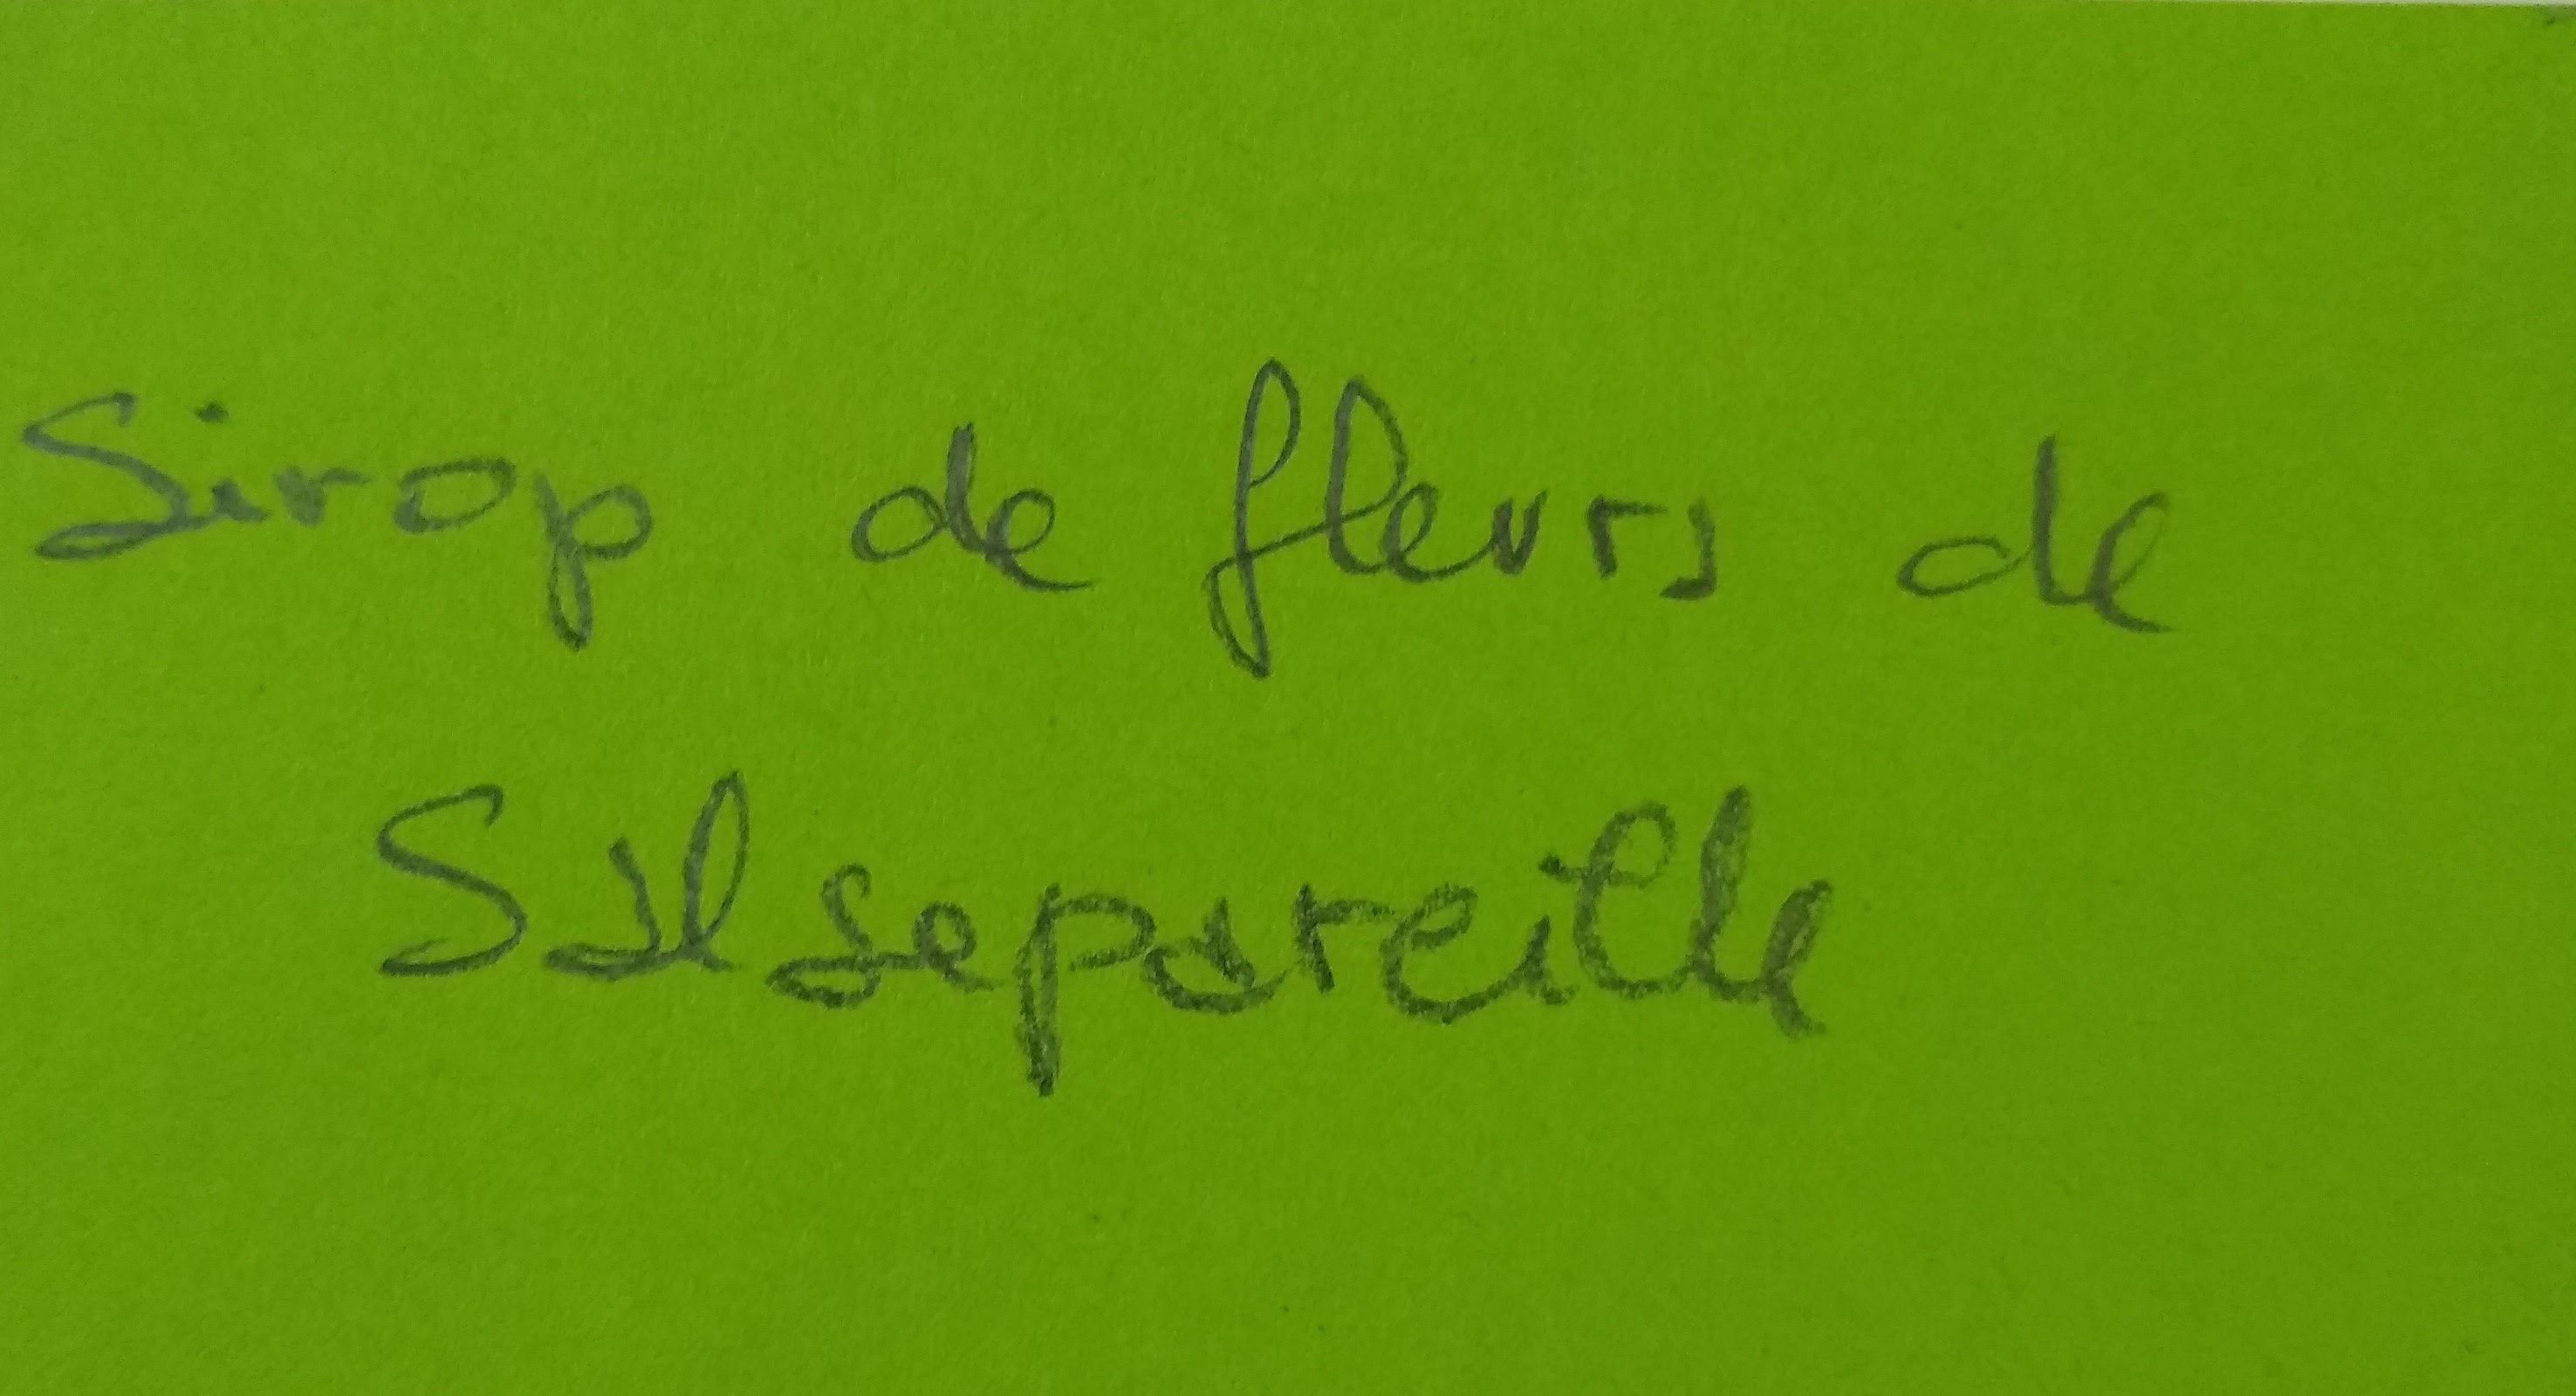 Sirop de fleurs de
Salsepareille